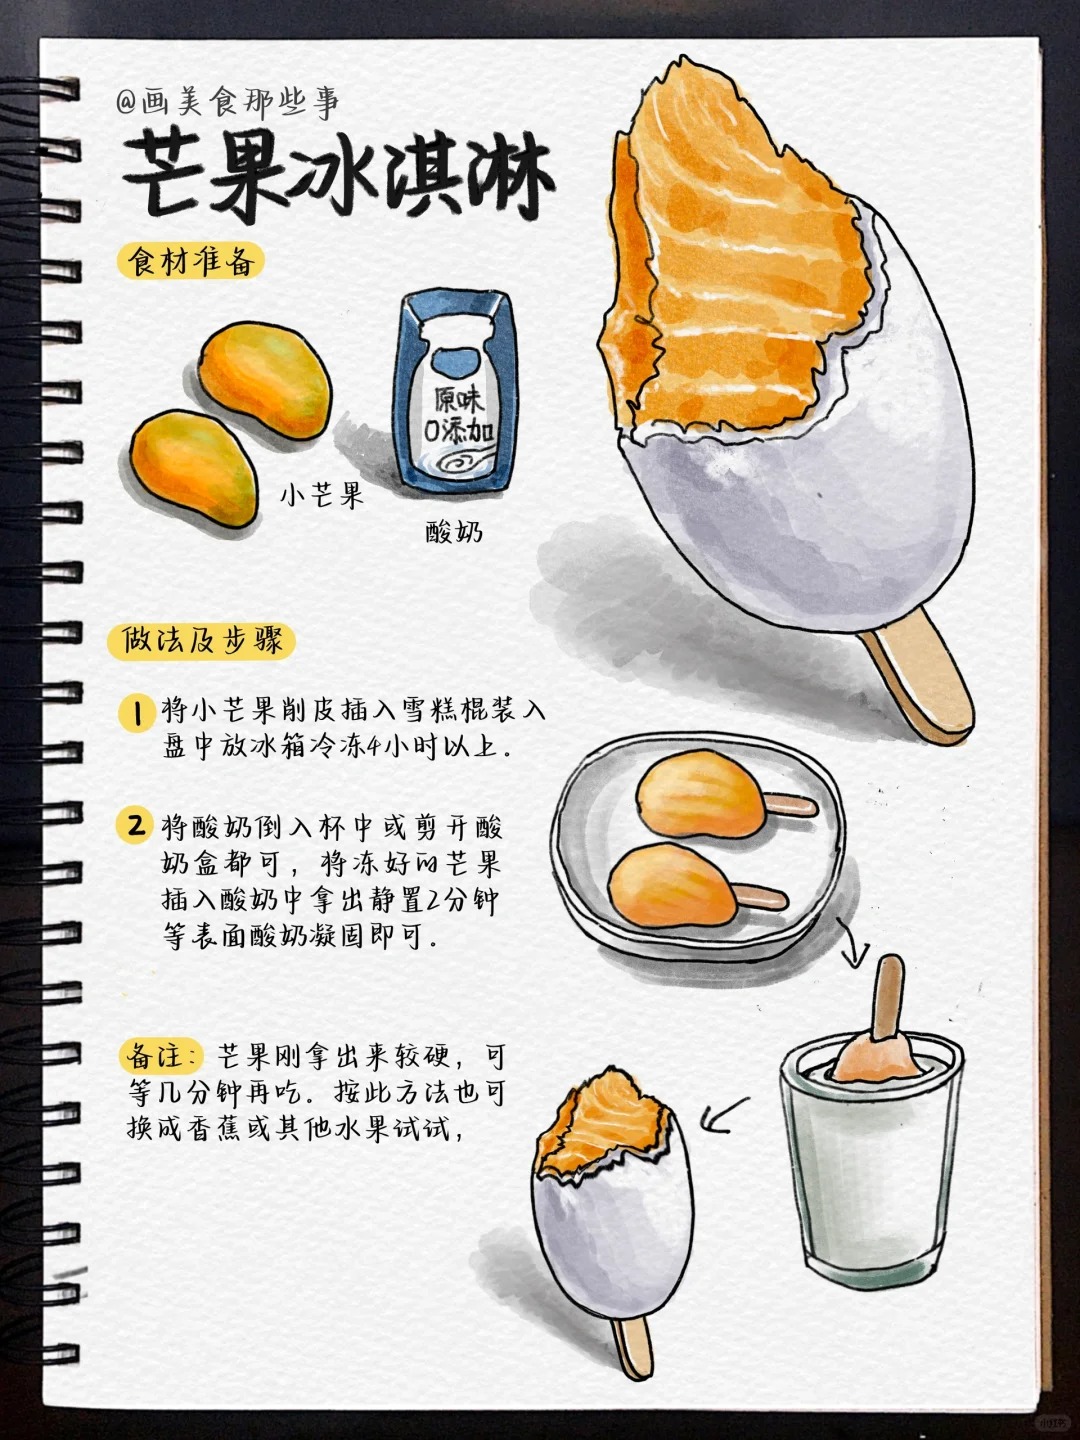 @画美食那些事
芒果冰淇淋
食材准备
原味
0添加
小芒果
酸奶
做法及步骤
1 将小芒果削皮插入雪糕棍装入
盘中放冰箱冷冻4小时以上.
2 将酸奶倒入杯中或剪开酸
奶盒都可，将冻好的芒果
插入酸奶中拿出静置2分钟
等表面酸奶凝固即可.
备注：芒果刚拿出来较硬，可
等几分钟再吃.按此方法也可
换成香蕉或其他水果试试，